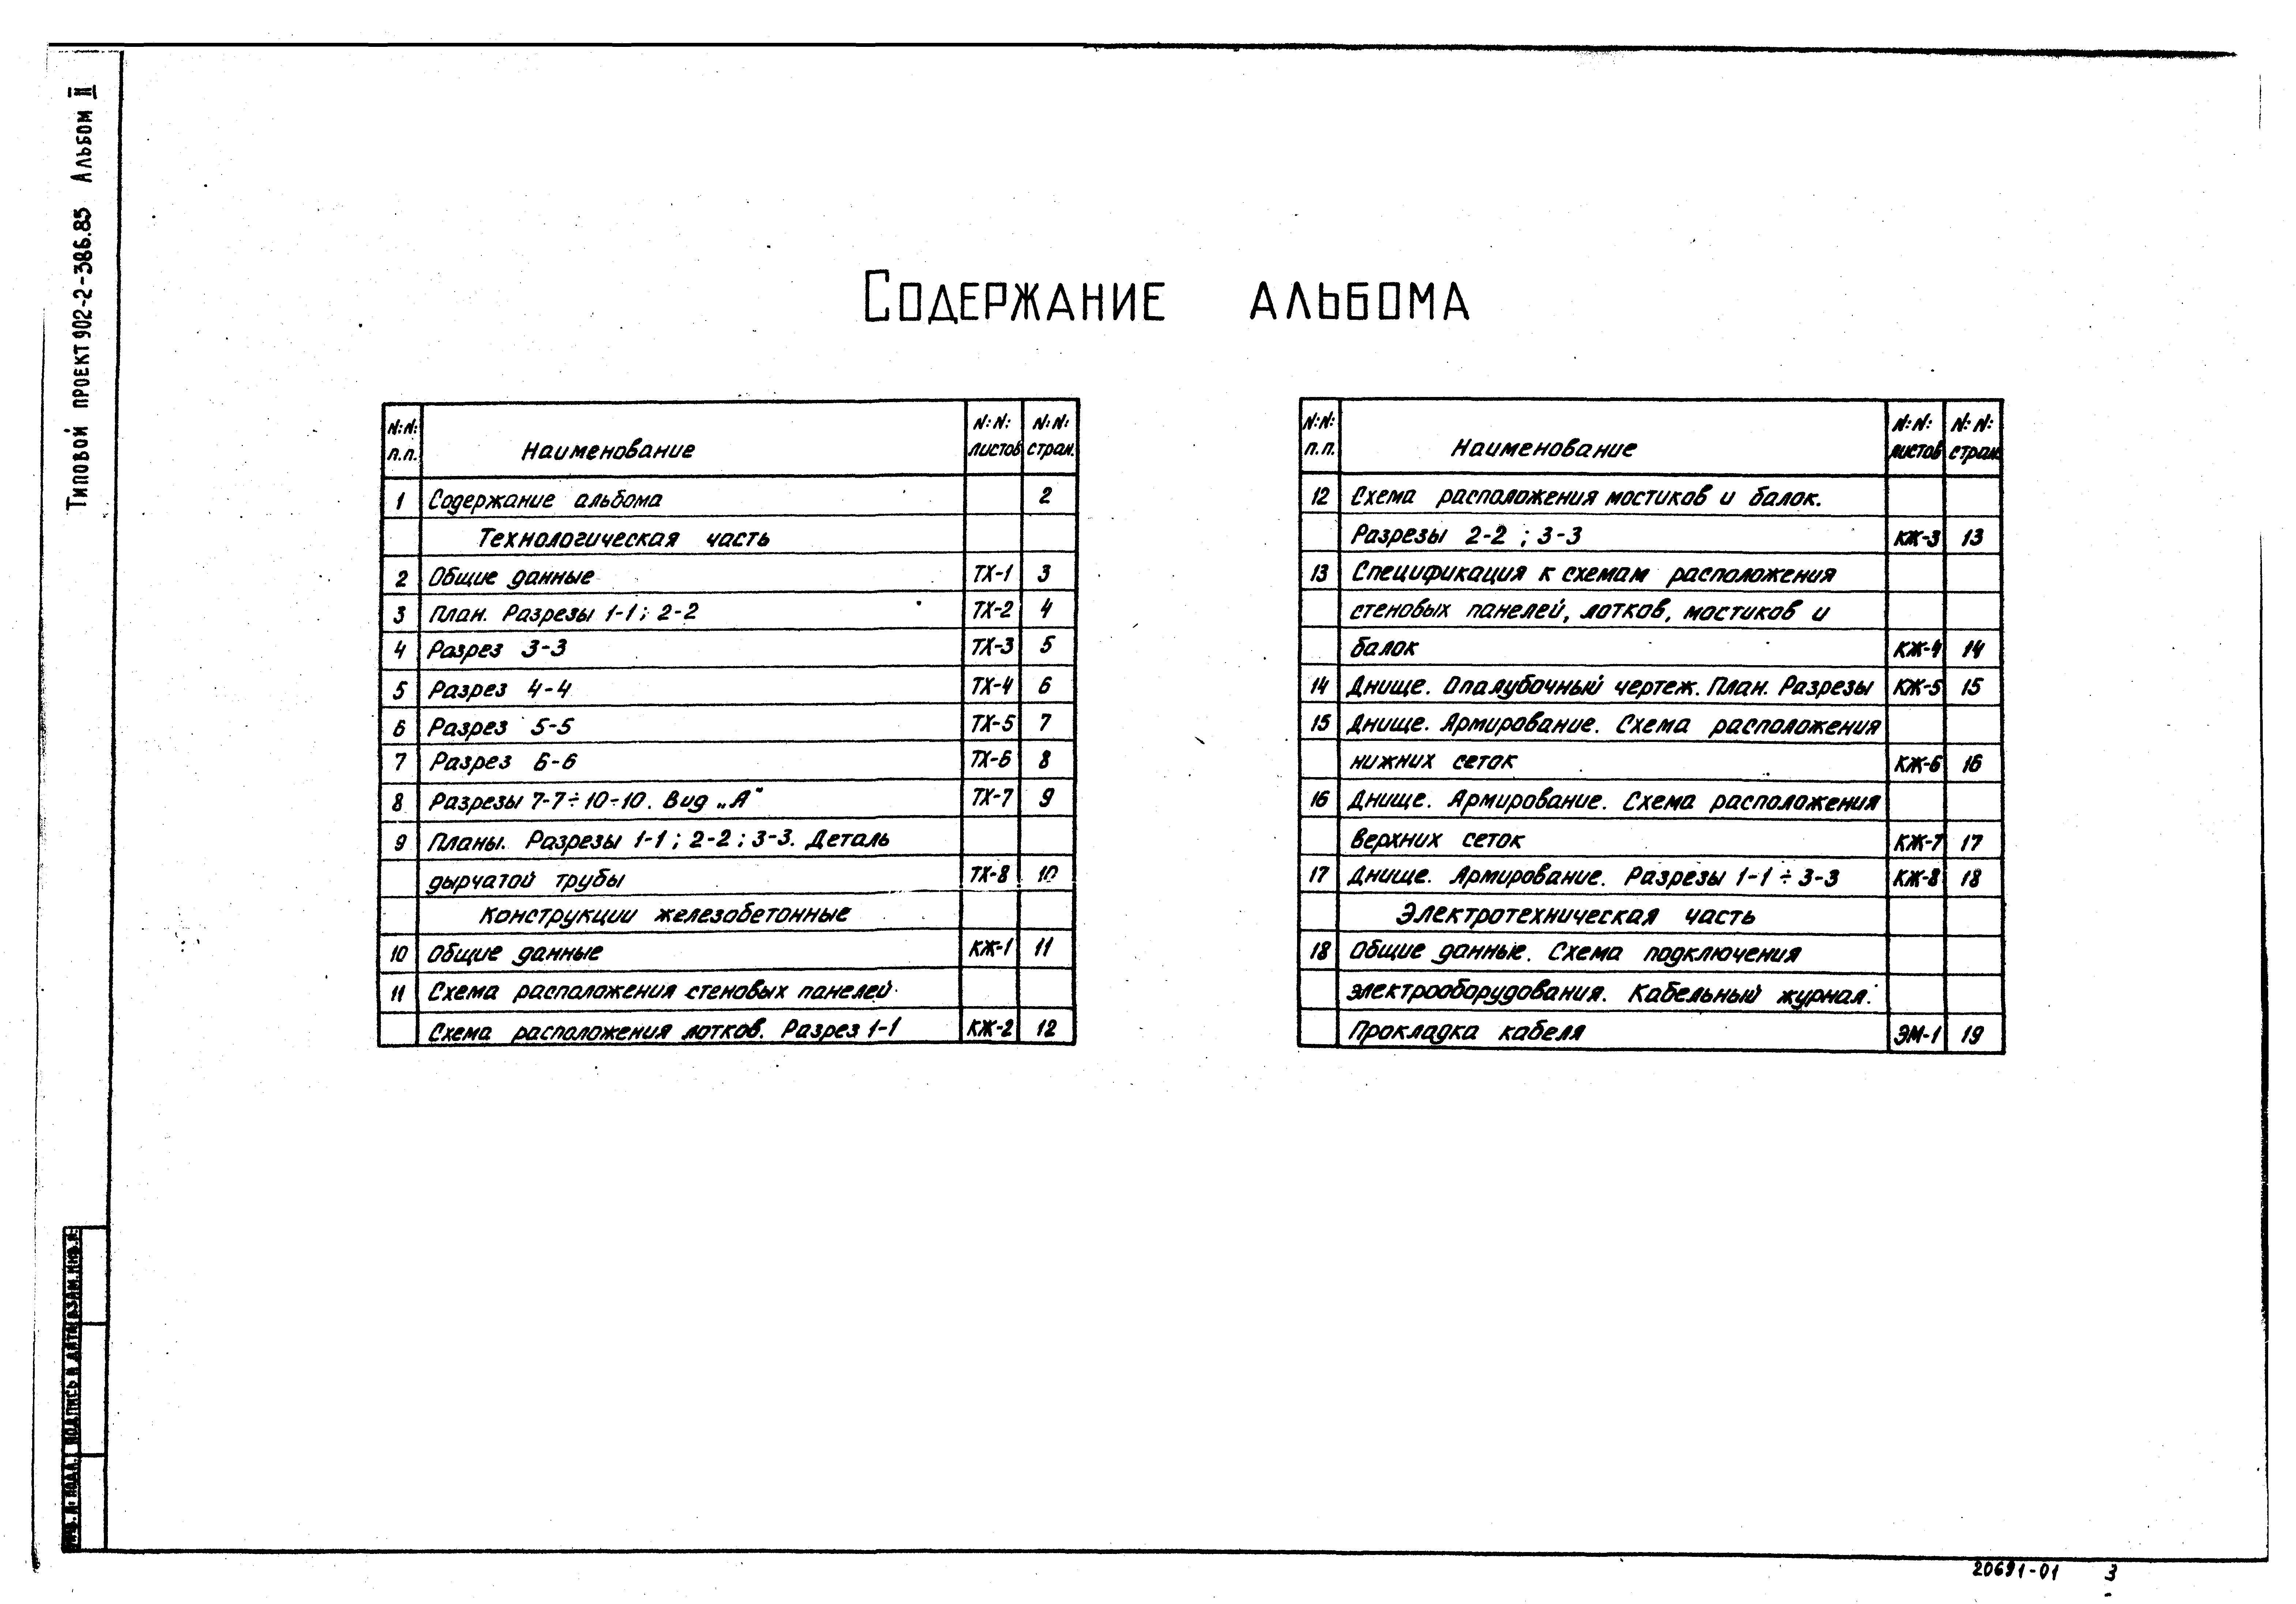 Типовой проект 902-2-386.85 Альбом II
Содержание альбома
N:N: п.п. Наименование N:N: листов N:N: стран.
1 Содержание альбома 2
Технологическая часть
2 Общие данные ТХ-1 3
3 План. Разрезы 1-1; 2-2 ТХ-2 4
4 Разрез 3-3 ТХ-3 5
5 Разрез 4-4 ТХ-4 6
6 Разрез 5-5 ТХ-5 7
7 Разрез 6-6 ТХ-6 8
8 Разрезы 7-7÷10-10. Вид „А" ТХ-7 9
9 Планы. Разрезы 1-1; 2-2; 3-3. Деталь
дырчатой трубы ТХ-8 10
Конструкции железобетонные
10 Общие данные КЖ-1 11
11 Схема расположения стеновых панелей
Схема расположения лотков. Разрез 1-1 КЖ-2 12
N:N: п.п. Наименование N:N: листов N:N: стран.
12 Схема расположения мостиков и балок.
Разрезы 2-2; 3-3 КЖ-3 13
13 Спецификация к схемам расположения
стеновых панелей, лотков, мостиков и
балок КЖ-4 14
14 Днище. Опалубочный чертеж. План. Разрезы КЖ-5 15
15 Днище. Армирование. Схема расположения
нижних сеток КЖ-6 16
16 Днище. Армирование. Схема расположения
верхних сеток КЖ-7 17
17 Днище. Армирование. Разрезы 1-1÷3-3 КЖ-8 18
Электротехническая часть
18 Общие данные. Схема подключения
электрооборудования. Кабельный журнал.
Прокладка кабеля ЭМ-1 19
Инв. N: подл. Подпись и дата Взам. инв. N:
20691-01 3